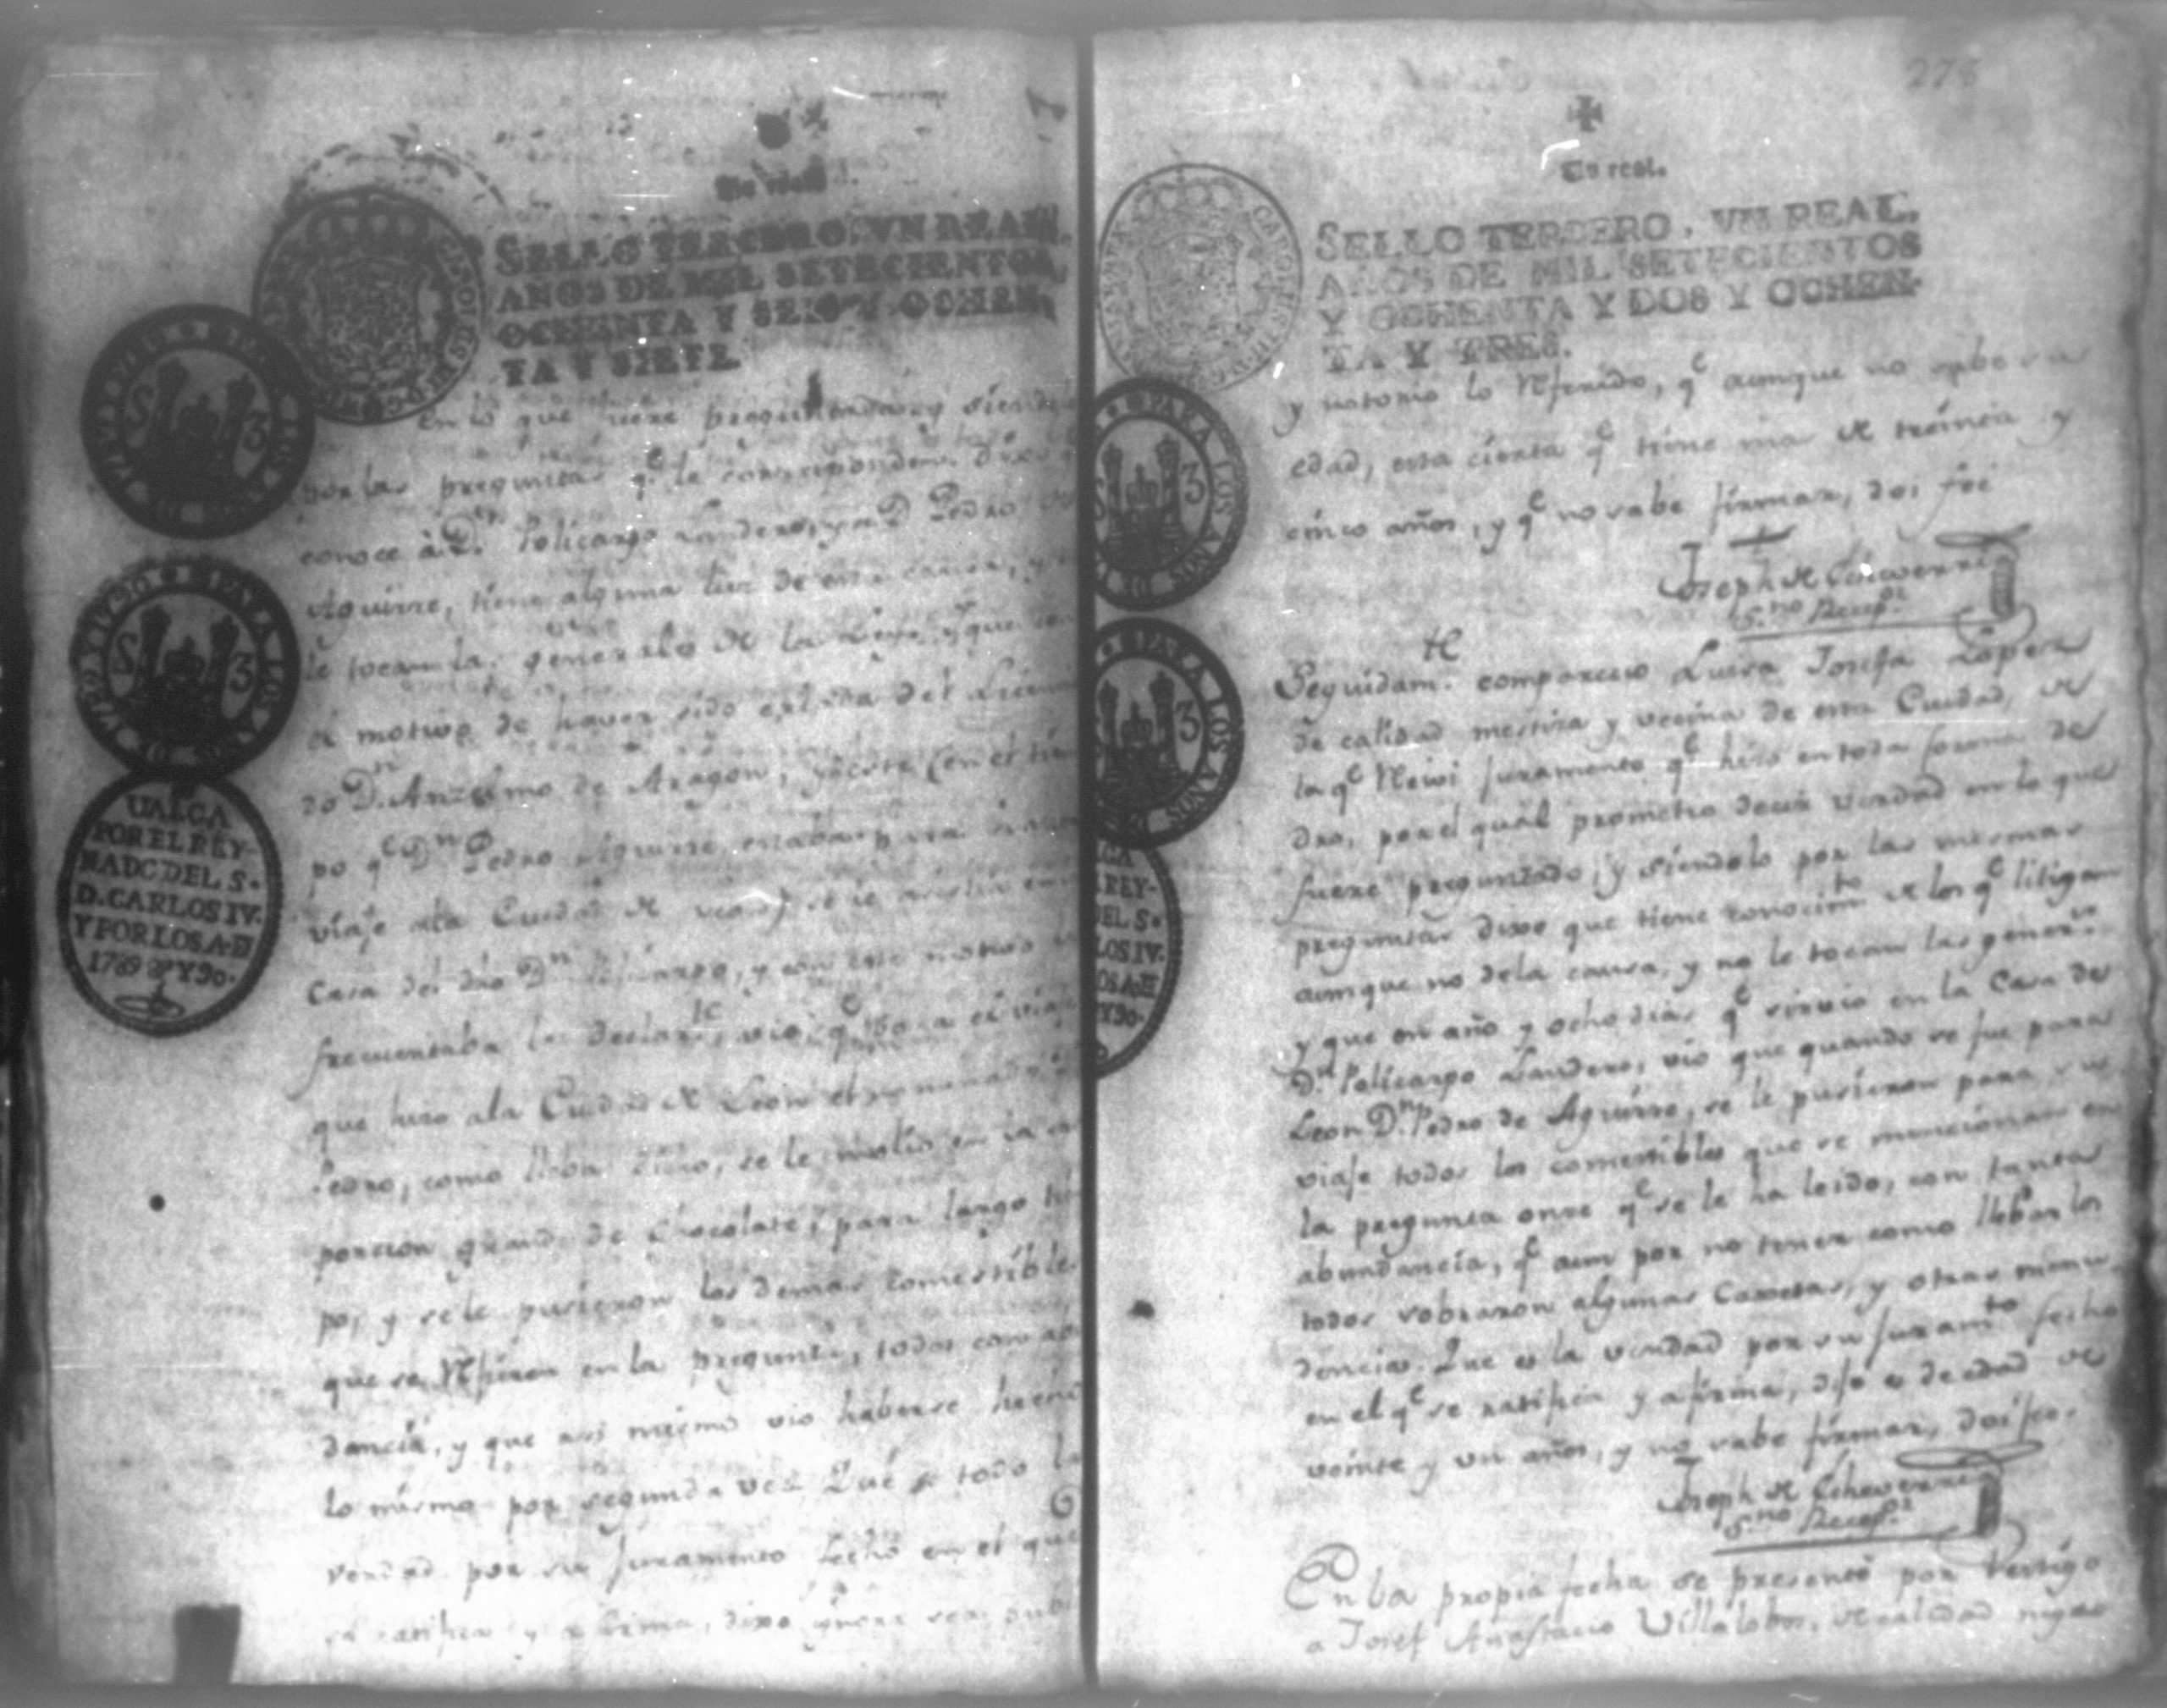 Un real.
SELLO TERCERO, VN REAL,
AÑOS DE MIL SETECIENTOS
OCHENTA Y SEIS Y OCHEN-
TA Y SIETE.
PARA LOS AÑOS DE
S 3
PARA LOS AÑOS DE 1789 Y 1790
S 3
UALGA
POR EL REY-
NADO DEL S.
D. CARLOS IV.
Y POR LOS A. D
1789 Y 90.
en lo que fuere preguntada, y siendo
por las preguntas qe. le corresponden. Dixo q
conoce à Dn. Policarpo Landero, y a Dn. Pedro de
Aguirre, tiene alguna luz de esta causa, y
le tocan las generales de la Ley, y que con
el motivo de haver sido del
ro Dn. Anzelmo de Aragon, y (en el tiem
po qe. Dn. Pedro Aguirre estaba para
viaje ala Ciudad de Leon) se le
Casa del dho Dn. Policarpo, y con este motivo
frecuentaba la declarte., vio, qe. para el viaje
que hizo ala Ciudad de Leon el nominado Dn.
Pedro, como lleba dicho, se le molio en la
porcion grande de Chocolate, para largo tiem
po, y se le pusieron los demas comestibles
que se refieren en la pregunta, todos con abun
dancia, y que asi mismo vio haberse hecho
lo mismo por segunda vez. Que es todo la
verdad por su juramento fecho en el que
se ratifica y afirma, dixo ser publi
278
Un real.
SELLO TERCERO, VN REAL,
AÑOS DE MIL SETECIENTOS
Y OCHENTA Y DOS Y OCHEN-
TA Y TRES.
PARA LOS AÑOS DE
S 3
PARA LOS AÑOS DE
S 3
LGA
REY-
DEL S.
LOS IV.
OS A. D
Y 90.
y notorio lo referido, qe. aunque no sabe su
edad, esta cierta qe. tiene mas de treinta y
cinco años, y qe. no sabe firmar, doi fee
Joseph de Echaverria
S.no Recepor.
Seguidamte. comparecio Luisa Josefa Lopez
de calidad mestiza y vecina de esta Ciudad, de
la qe. Recivi juramento qe. hizo en toda forma de
dro, por el qual prometio decir verdad en lo que
fuere preguntado, y siendolo por las mismas
preguntas dixo que tiene conocimto. de los qe. litigan
aunque no dela causa, y no le tocan las generls.
y que en año y ocho dias qe. sirvio en la Casa de
Dn. Policarpo Landero, vio que quando se fue para
Leon Dn. Pedro de Aguirre, se le pusieron para su
viaje todos los comestibles que se mencionan en
la pregunta onze qe. se le ha leido, con tanta
abundancia, qe. aun por no tener como llebar los
todos sobraron algunas Caxetas, y otras menu
dencias. Que es la verdad por su juramto. fecho
en el qe. se ratifica y afirma, dijo es de edad de
veinte y un años, y no sabe firmar, doi fee.
Joseph de Echaverria
S.no Recepor.
En la propia fecha se presentó por testigo
a Josef Anastacio Villalobos, de calidad negro